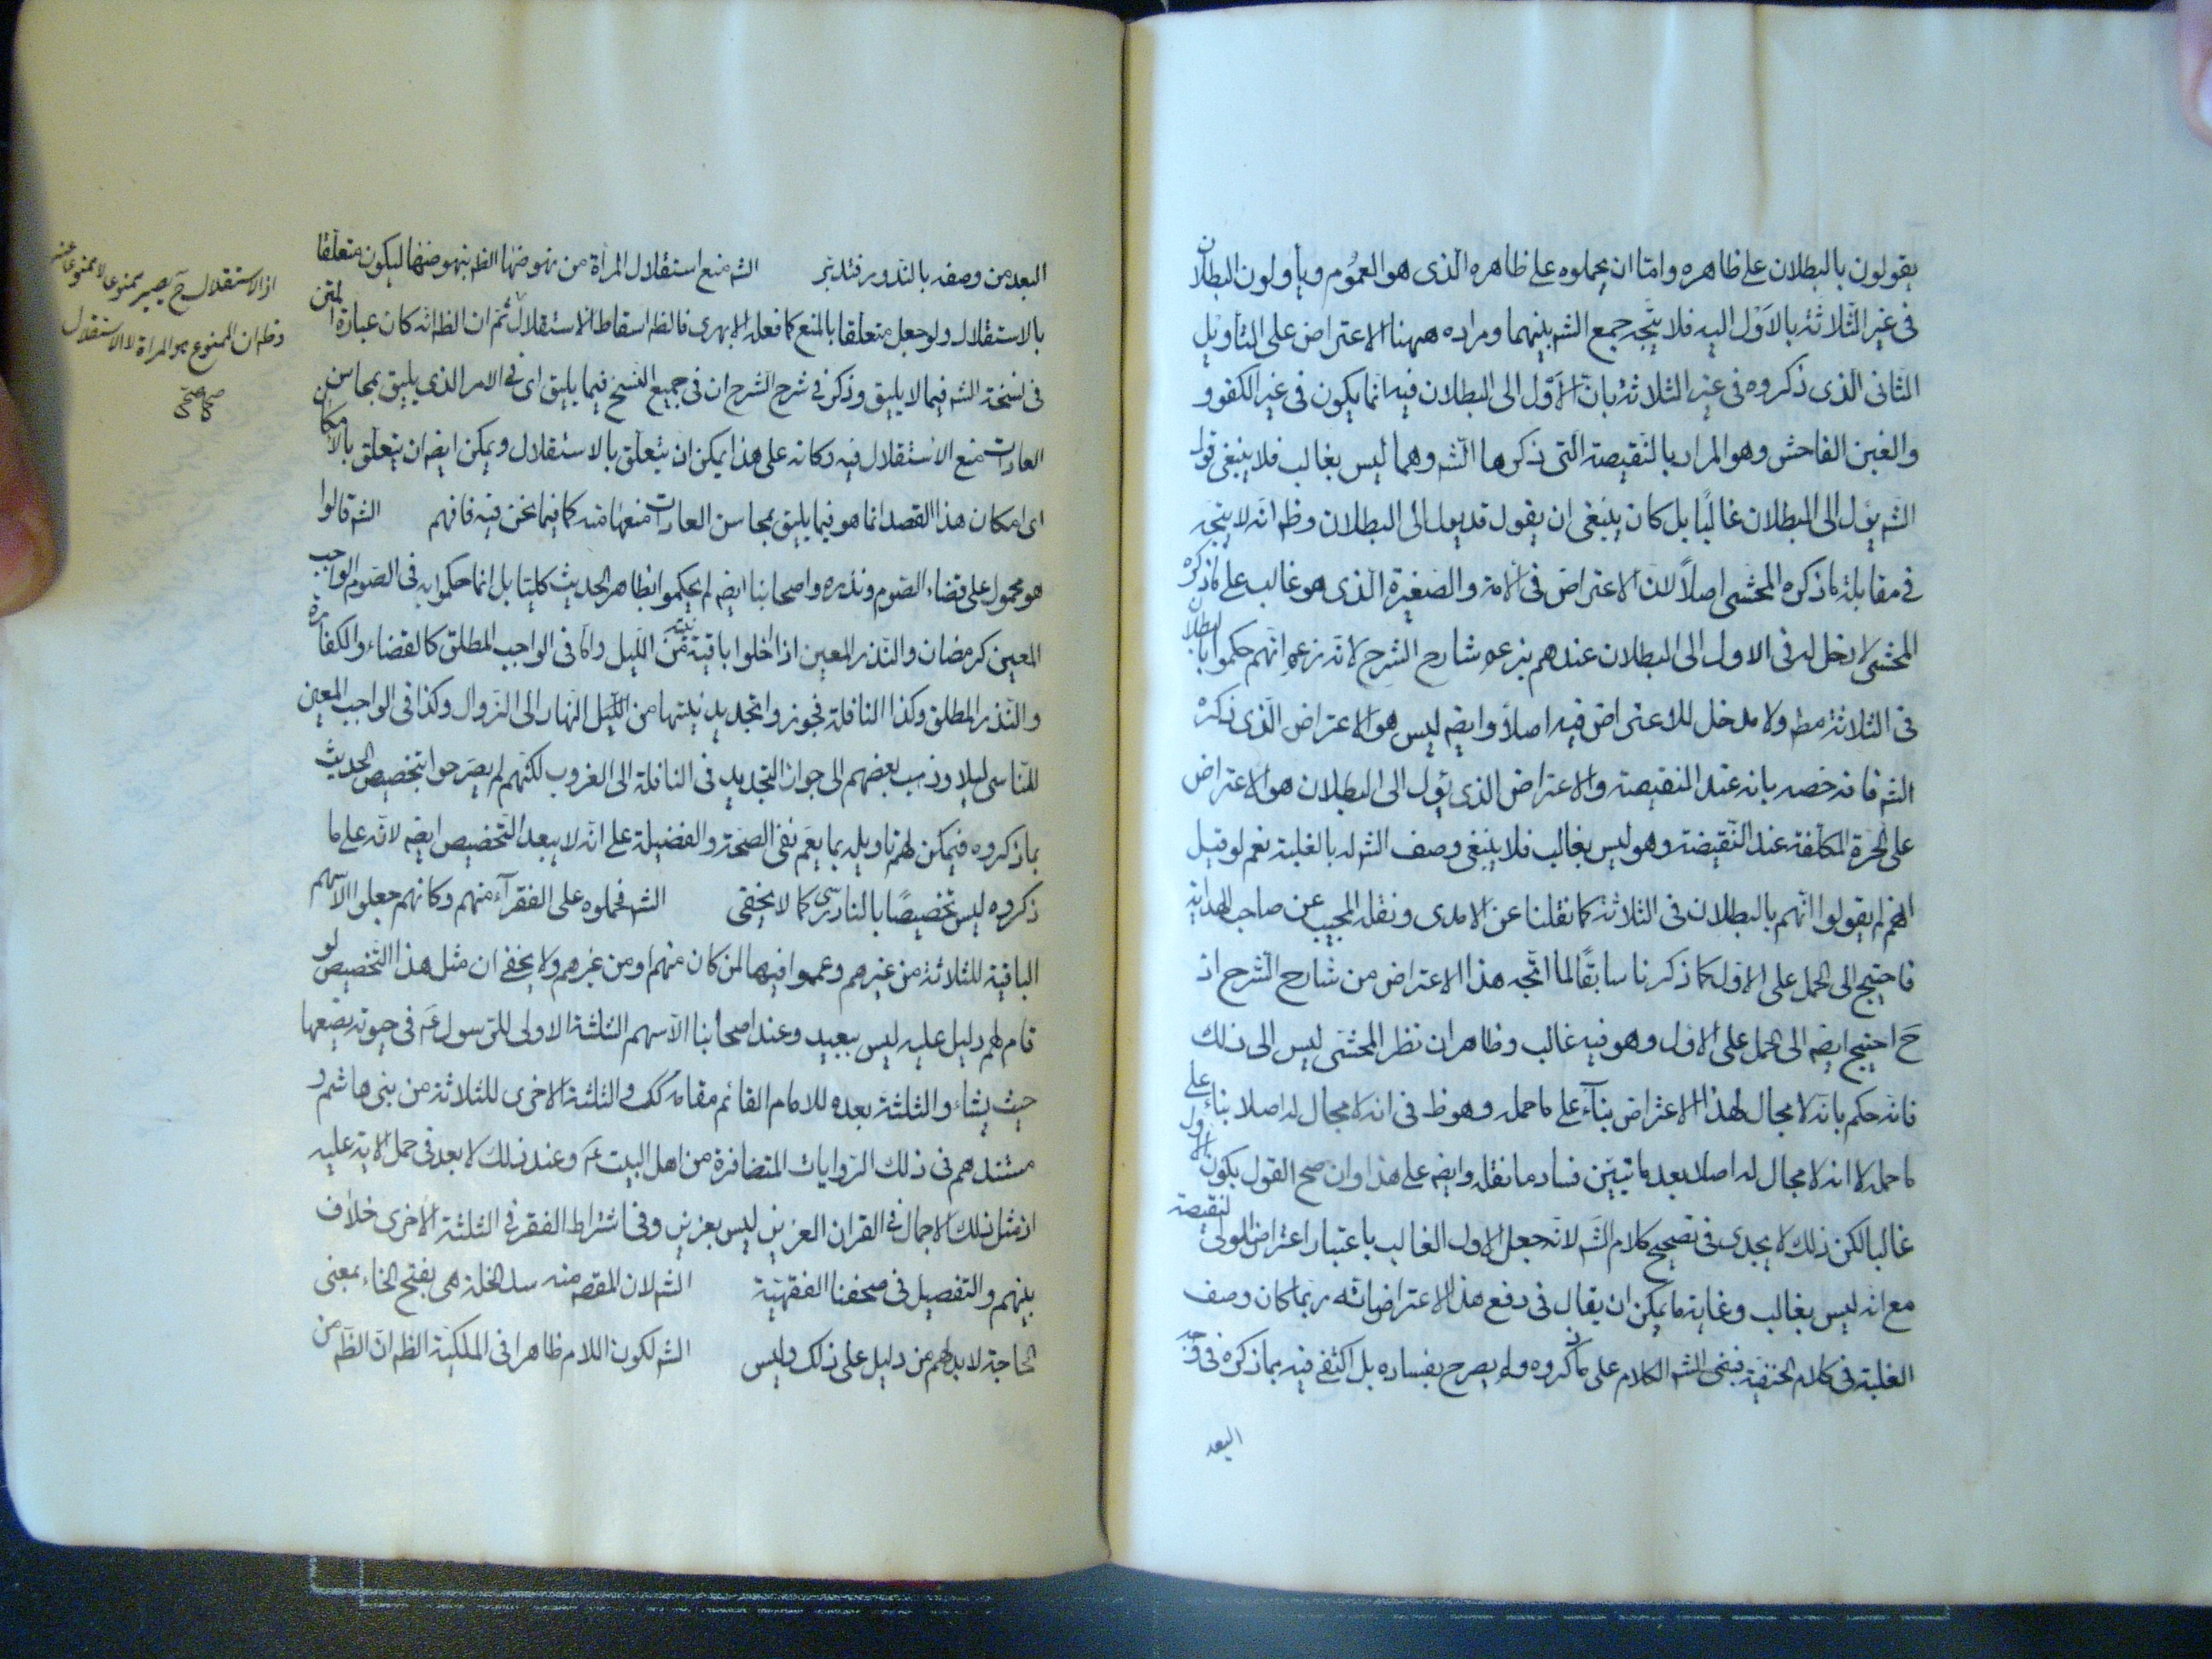 يقولون بالبطلان على ظاهره وامّا ان يحملوه على ظاهره الّذى هو العموم ويأولون البطلان
فى غير الثّلاثة بالاَوْل اليه فلا يتّجه جمع الشه بينهما ومراده ههنا الاعتراض على التّأويل
الثّانى الّذى ذكروه فى غير الثلاثة بانّ الاَوْل الى البطلان فيه انّما يكون فى غير الكفو و
والغبن الفاحش وهو المراد بالنّقيصة الّتى ذكرها الشه وهما ليس بغالب فلا ينبغى قول
الشه يؤل الى البطلان غالبًا بل كان ينبغى ان يقول قد يؤل الى البطلان وظه انّه لا يتّجه
فى مقابلة ما ذكره المحشى اصلاً لانّ الاعتراض فى الامة والصّغيرة الّذى هو غالب على ما ذكره
المحشى لا دخل له فى الاول الى البطلان عندهم بزعم شارح الشرح لانّه زعم انّهم حكموا بالبطلان
فى الثلاثة مطه ولا مدخل للاعتراض فيه اصلاً وايضه ليس هو الاعتراض الّذى ذكره
الشه فانه خصه بانه عند النقيصة والاعتراض الذى يؤل الى البطلان هو الاعتراض
على الحرّة المكلّفة عند النّقيصة وهو ليس بغالب فلا ينبغى وصف الشه له بالغلبة نعم لو قيل
انهم لم يقولوا انّهم بالبطلان فى الثلاثة كما نقلنا عن الامدى ونقله المجيب عن صاحب الهداية
فاحتيج الى الحمل على الاول كما ذكرنا سابقًا لما اتّجه هذا الاعتراض من شارح الشّرح اذ
حَ احتيج ايضه الى الحمل على الاول وهو فيه غالب وظاهر ان نظر المحشى ليس الى ذلك
فانّه حكم بانّه لا مجال لهذا الاعتراض بنآءً على ما حمله وهو ظ فى انه لا مجال له اصلا بناءً على
ما حمله لا انه لا مجال له اصلا بعد ما تبيّن فساد ما نقله وايضه على هذا وان صح القول بكون الاول
غالبا لكن ذلك لا يجدى فى تصحيح كلام الشّه لانّه جعل الاول الغالب باعتبار اعتراض الولى لنقيصة
مع انّه ليس بغالب وغاية ما يمكن ان يقال فى دفع هذا الاعتراض انّه ربّما كان وصف
الغلبة فى كلام الحنفيّة فبنى الشه الكلام على ما ذكروه ولم يصرح بفساده بل اكتفى فيه بما ذكره فى وجه
البعد
البعد من وصفه بالنّدور فتدبّر الشه منع استقلال المرأة من نهوضها الظه نهوضها ليكون متعلّقا
بالاستقلال ولو جعل متعلّقا بالمنع كما فعله الابهرى فالظه اسقاط الاستقلال ثمّ ان الظه انّه كان عبارة المتن
فى نسخة الشه فيما لا يليق وذكر فى شرح الشرح ان فى جميع النسخ فيما يليق اى فى الامر الذى يليق بمحاسن
العادات منع الاستقلال فيه وكانه على هذا يمكن ان يتعلّق بالاستقلال ويمكن ايضه ان يتعلّق بالامكان
اى امكان هذا القصد انما هو فيما يليق بمحاسن العادات منعها منه كما فيما نحن فيه فافهم الشه قالوا
هو محمول على قضاء الصّوم ونذره واصحابنا ايضه لم يحكموا بظاهر الحديث كليّا بل انّما حكموا به فى الصّوم الواجب
المعين كرمضان والنّذر المعين اذا اخلوا باقية نيته من اللّيل وامّا فى الواجب المطلق كالقضاء والكفارة
والنّذر المطلق وكذا النافلة فجوزوا تجديد نيتها من اللّيل النّهار الى الزوال وكذا فى الواجب المعين
للنّاسى ليلا وذهب بعضهم الى جواز التجديد فى النافلة الى الغروب لكنّهم لم يصرّحوا بتخصيص الحديث
بما ذكروه فيمكن لهم تاويله بما يعمّ نفى الصّحّة والفضيلة على انّه لا يبعد التّخصيص ايضه لانّه على ما
ذكروه ليس تخصيصًا بالنادرى كما لا يخفى الشه فحملوه على الفقرآء منهم وكانهم جعلوا الاسهم
الباقية للثلاثة من غيرهم وعمموا فيها لمن كان منهم او من غيرهم ولا يخفى ان مثل هذا التّخصيص لو
قام لهم دليل عليه ليس ببعيد وعند اصحابنا الاسهم الثلثة الاولى للرّسول عَم فى حيوته يضعها
حيث يشاء والثلثة بعده للامام القائم مقامه كك والثلثة الاخرى للثلاثة من بنى هاشم و
مستندهم فى ذلك الرّوايات المتضافرة من اهل البيت عَم وعند ذلك لا بعد فى حمل الاية عليه
اذ مثل ذلك الاجمال فى القران العزيز ليس بعزيز وفى اشتراط الفقر فى الثلثة الاخرى خلاف
بينهم والتفصيل فى صحفنا الفقهيّة الشه لان المقصه منه سد الخلة هى بفتح الخاء بمعنى
الحاجة لا بد لهم من دليل على ذلك وليس الشه لكون اللام ظاهرا فى الملكيّة الظه انّ الظّه من
اذ الاستقلال حَ يصير ممنوعا لا ممنوعا عنه
وظه ان الممنوع هو المراة لا الاستقلال